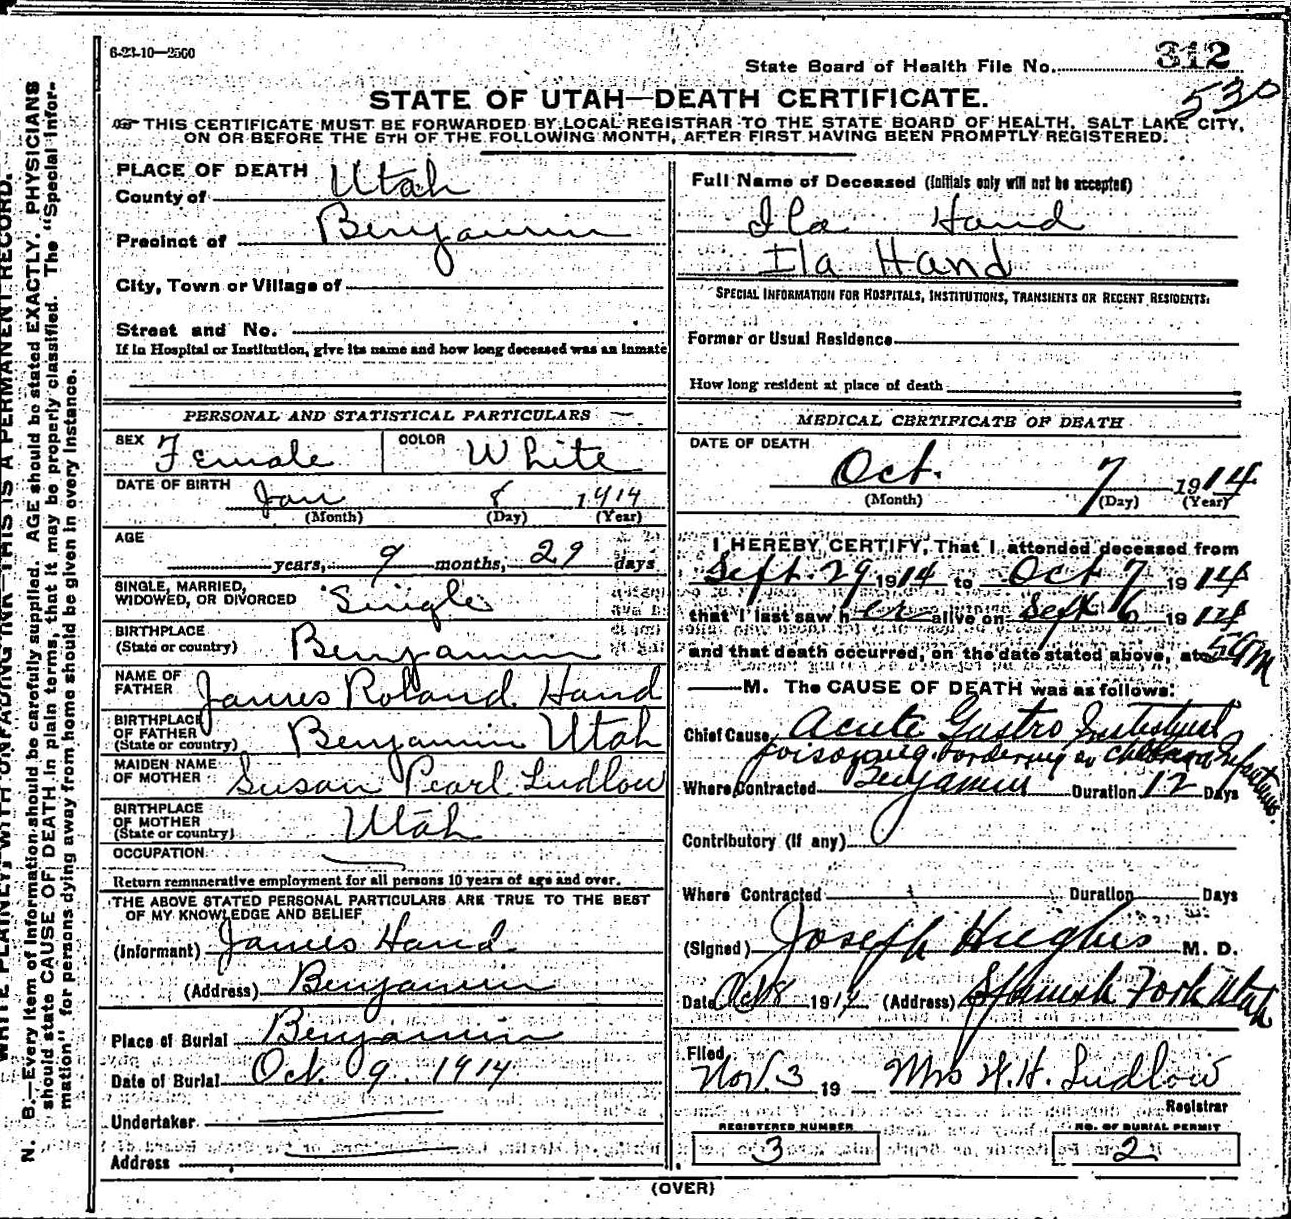 6-23-10—2500
State Board of Health File No. 312
530
STATE OF UTAH—DEATH CERTIFICATE.
THIS CERTIFICATE MUST BE FORWARDED BY LOCAL REGISTRAR TO THE STATE BOARD OF HEALTH, SALT LAKE CITY,
ON OR BEFORE THE 5TH OF THE FOLLOWING MONTH, AFTER FIRST HAVING BEEN PROMPTLY REGISTERED.
PLACE OF DEATH
County of Utah
Precinct of Benjamin
City, Town or Village of
Street and No.
If in Hospital or Institution, give its name and how long deceased was an inmate
PERSONAL AND STATISTICAL PARTICULARS
SEX Female COLOR White
DATE OF BIRTH Jan 8 1914
(Month) (Day) (Year)
AGE
years, 9 months, 29 days
SINGLE, MARRIED,
WIDOWED, OR DIVORCED Single
BIRTHPLACE
(State or country) Benjamin
NAME OF
FATHER James Roland Hand
BIRTHPLACE
OF FATHER
(State or country) Benjamin Utah
MAIDEN NAME
OF MOTHER Susan Pearl Ludlow
BIRTHPLACE
OF MOTHER
(State or country) Utah
OCCUPATION
Return remunerative employment for all persons 10 years of age and over.
THE ABOVE STATED PERSONAL PARTICULARS ARE TRUE TO THE BEST
OF MY KNOWLEDGE AND BELIEF
(Informant) James Hand
(Address) Benjamin
Place of Burial Benjamin
Date of Burial Oct. 9. 1914
Undertaker
Address
Full Name of Deceased (Initials only will not be accepted)
Ila Hand
Ila Hand
SPECIAL INFORMATION FOR HOSPITALS, INSTITUTIONS, TRANSIENTS OR RECENT RESIDENTS:
Former or Usual Residence
How long resident at place of death
MEDICAL CERTIFICATE OF DEATH
DATE OF DEATH
Oct. 7 1914
(Month) (Day) (Year)
I HEREBY CERTIFY, That I attended deceased from
Sept. 29 1914 to Oct 7 1914
that I last saw h er alive on Sept 6 1914
and that death occurred, on the date stated above, at 5 am
M. The CAUSE OF DEATH was as follows:
Chief Cause Acute Gastro Intestinal
poisoning bordering on Cholera Infantum.
Where Contracted Benjamin Duration 12 Days
Contributory (if any)
Where Contracted Duration Days
(Signed) Joseph Hughes M. D.
Date Oct 8 1914 (Address) Spanish Fork Utah
Filed
Nov. 3 19 Mrs H. H. Ludlow
Registrar
REGISTERED NUMBER NO. OF BURIAL PERMIT
3 2
(OVER)
WRITE PLAINLY, WITH UNFADING INK—THIS IS A PERMANENT RECORD.
N. B.—Every item of information should be carefully supplied. AGE should be stated EXACTLY. PHYSICIANS
should state CAUSE OF DEATH in plain terms, that it may be properly classified. The "Special Infor-
mation" for persons dying away from home should be given in every instance.